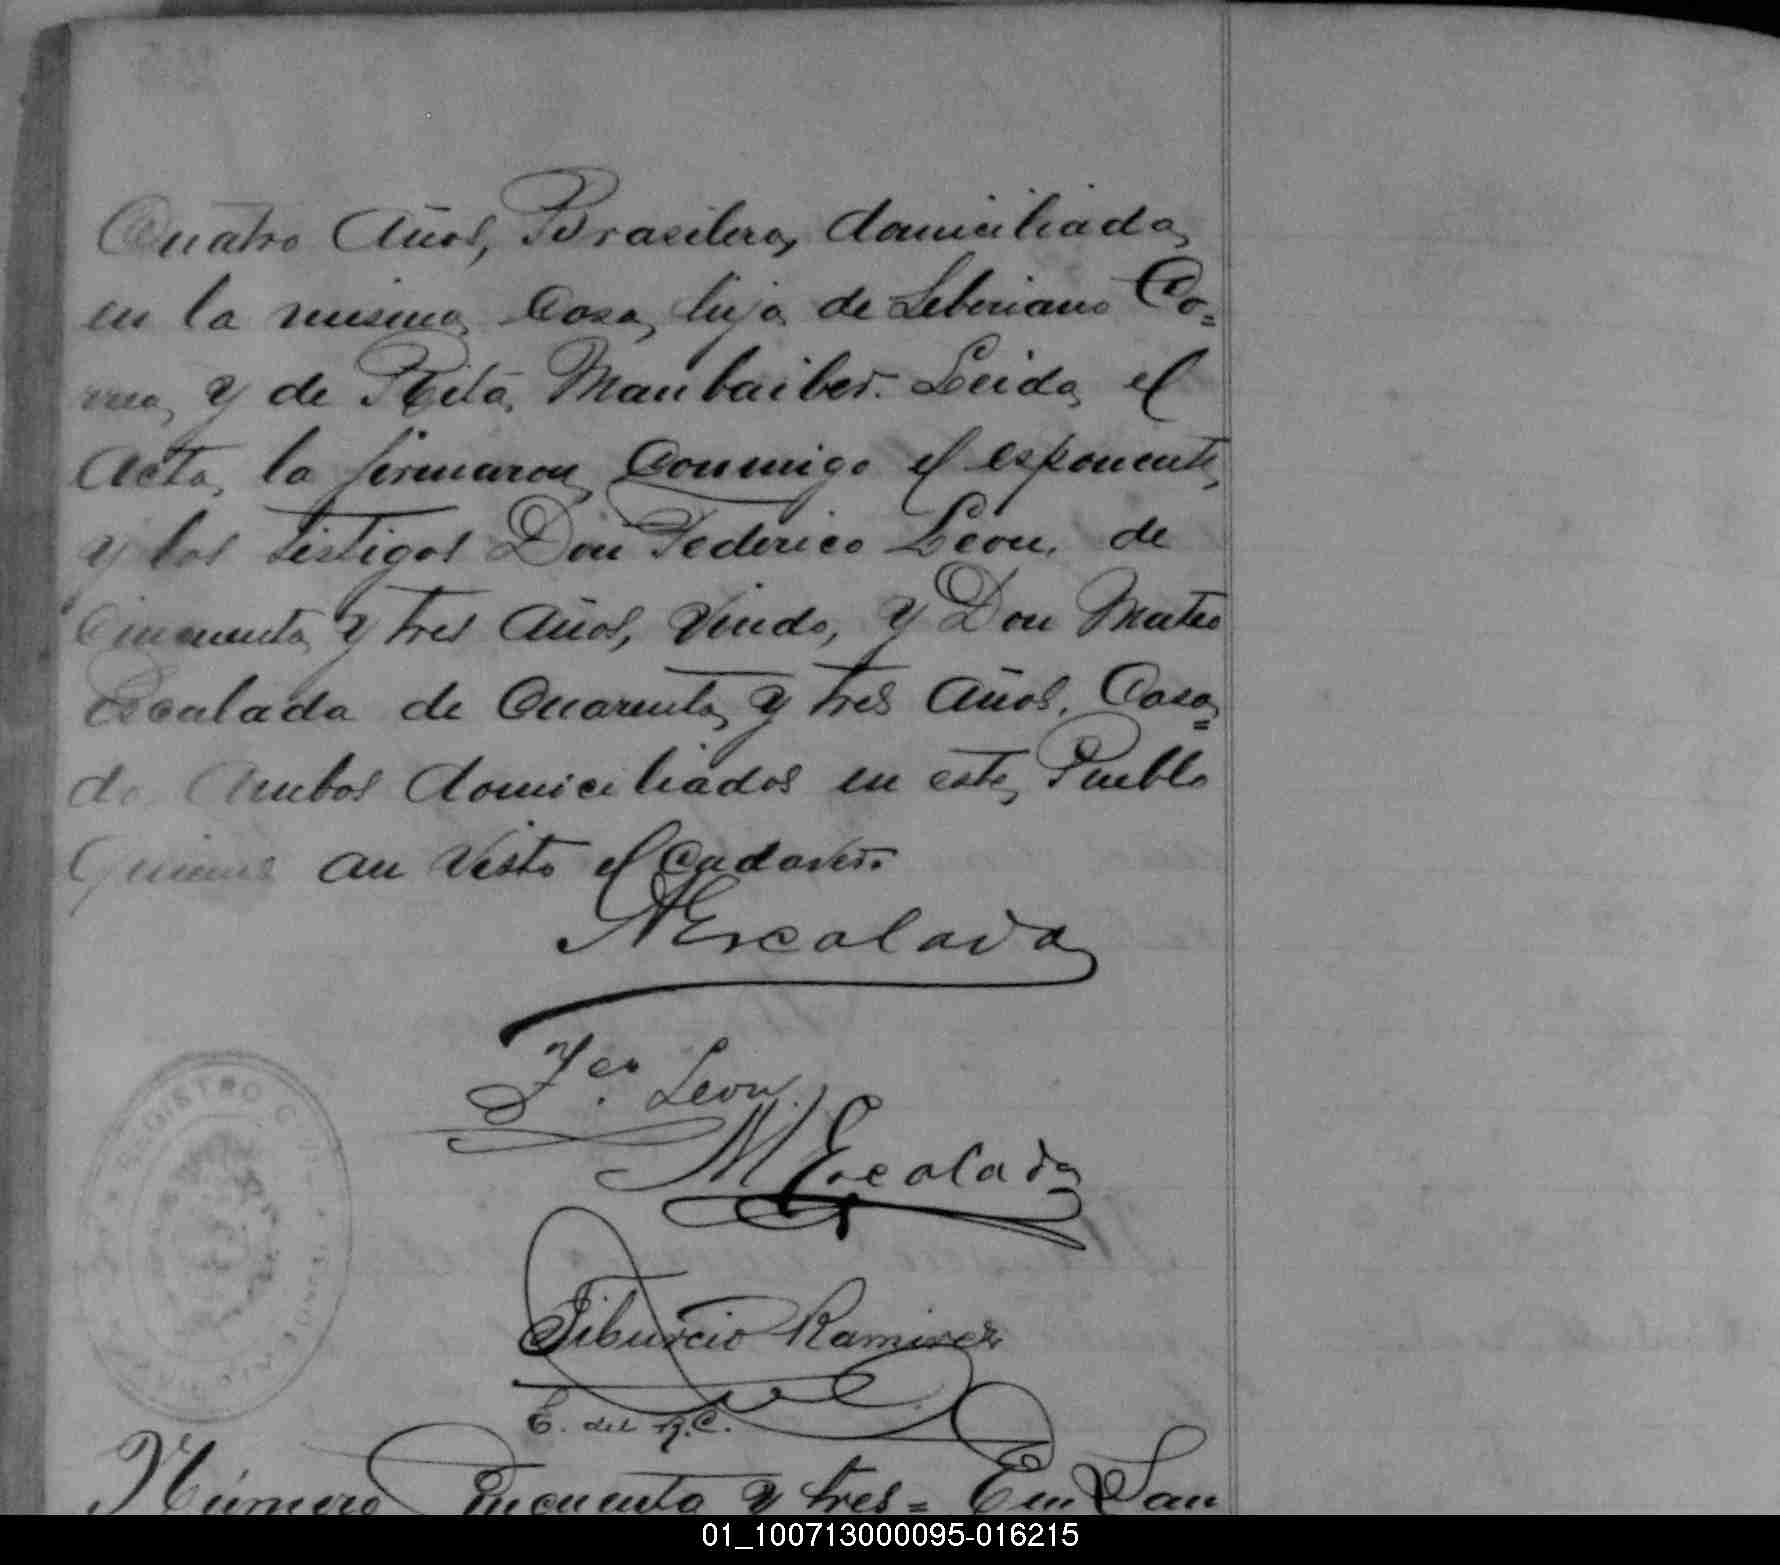 Cuatro Años, Brasilera, domiciliada
en la misma Casa, hija de Leberiano Co=
rrea, y de Rita, Manbaiber. Leida el
Acta, la firmaron Conmigo el esponente,
y los testigos Don Federico Leon, de
Cincuenta y tres Años, Viudo, y Don Mateo
Escalada de Cuarenta y tres Años, Casa=
do Ambos domiciliados en este Pueblo
Quienes an visto el Cadaver.
AEscalada
Fco. Leon.
M Escalada
Tiburcio Ramirez
E. del R.C.
REGISTRO CIVIL
Número Cincuenta y tres = En San
01_100713000095-016215